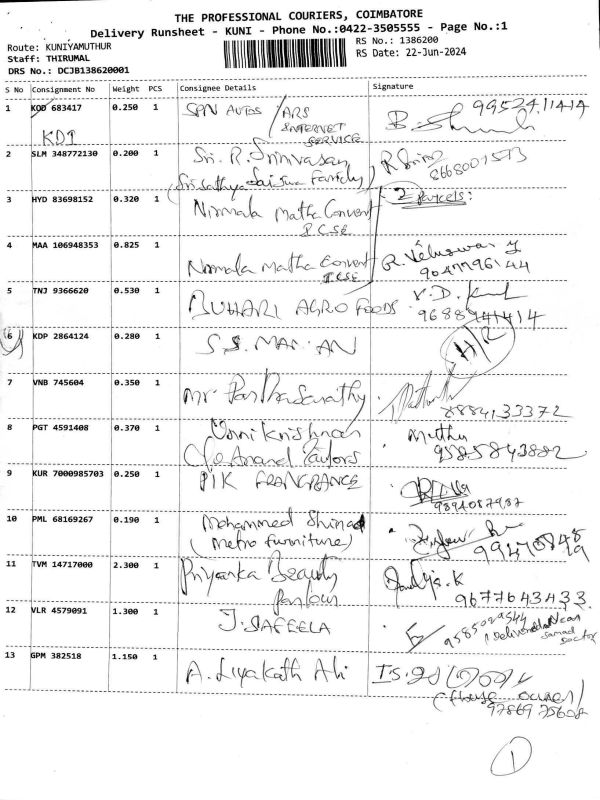 THE PROFESSIONAL COURIERS, COIMBATORE
Delivery Runsheet - KUNI - Phone No.:0422-3505555 - Page No.:1
Route: KUNIYAMUTHUR
RS No.: 1386200
Staff: THIRUMAL
RS Date: 22-Jun-2024
DRS No.: DCJB138620001
S No Consignment No Weight PCS Consignee Details Signature
1 KOD 683417 0.250 1 SPN AUTOS / ARS 9952411414
INTERNET
KDI SERVICE
2 SLM 348772130 0.200 1 Sri. R. Srinivasan 8668001573
3 HYD 83698152 0.320 1 Nirmala Matha Convent 2 Parcels:
I.C.S.E
4 MAA 106948353 0.825 1 Nirmala Matha Convent
I.C.S.E 9047796144
5 TNJ 9366620 0.530 1 BUHARI AGRO FOODS V.D.
9688941414
6 KDP 2864124 0.280 1 S.S. H/R
7 VNB 745604 0.350 1 Mr. 8884133372
8 PGT 4591408 0.370 1 Unnikrishnan Muthu
C/o Anand Tailors 9585843882
9 KUR 7000985703 0.250 1 PIK FRANGRANCE
10 PML 68169267 0.190 1 Mohammed
(Metro furniture)
11 TVM 14717000 2.300 1 Priyanka Beauty
Parlour 9677643433
12 VLR 4579091 1.300 1 J. SAFEELA 9585029544
Delivered Near
doctor
13 GPM 382518 1.150 1 A. Liyakath Ali
(House owner)
97869 75608
1